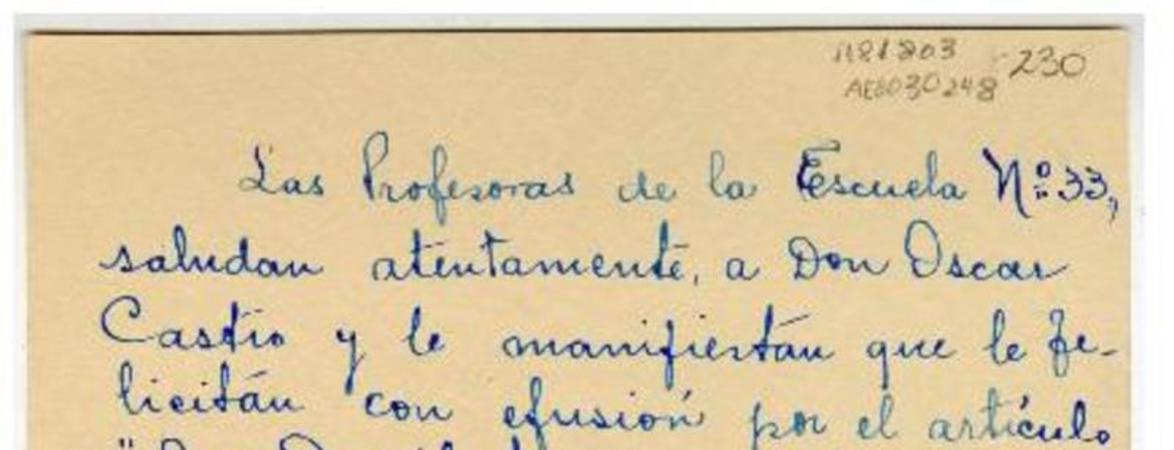 230
AE0030248
Las Profesoras de la Escuela Nº 33,
saludan atentamente, a Don Oscar
Castro y le manifiestan que le fe-
licitán con efusión por el artículo